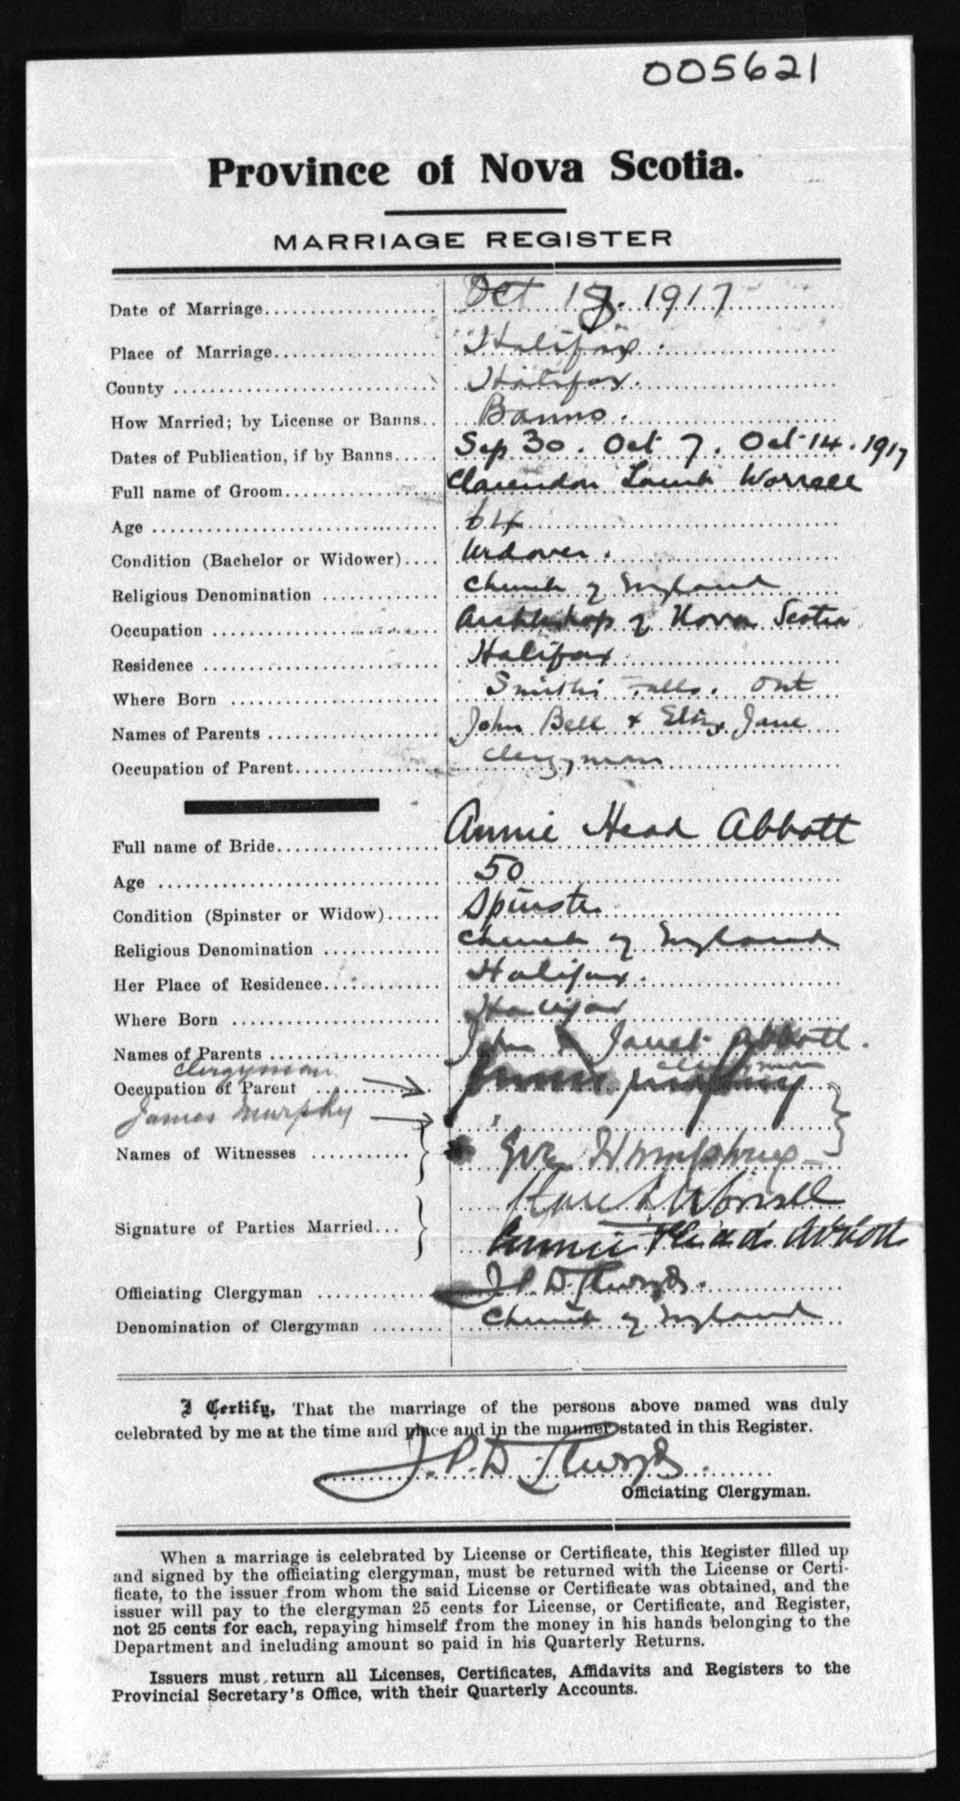 005621
Province of Nova Scotia.
MARRIAGE REGISTER
Date of Marriage Oct 1917
Place of Marriage Halifax.
County Halifax.
How Married; by License or Banns Banns.
Dates of Publication, if by Banns Sep 30. Oct 7. Oct 14. 1917
Full name of Groom Clarendon Lamb Worrell
Age 64
Condition (Bachelor or Widower)
Religious Denomination Church of England
Occupation Archbishop of Nova Scotia
Residence Halifax
Where Born Smiths Falls. Ont
Names of Parents John Bell & Eliz. Jane
Occupation of Parent Clergyman
Full name of Bride Annie Head Abbott
Age 50
Condition (Spinster or Widow) Spinster
Religious Denomination Church of England
Her Place of Residence Halifax.
Where Born Halifax
Names of Parents John & Janet Abbott.
clergyman clergyman
Occupation of Parent James Murphy
James Murphy
Names of Witnesses Geo Humphrey
Clare L Worrell
Signature of Parties Married Annie Head Abbott
Officiating Clergyman J.P.D. Llwyd.
Denomination of Clergyman Church of England
I Certify, That the marriage of the persons above named was duly
celebrated by me at the time and place and in the manner stated in this Register.
J.P.D. Llwyd.
Officiating Clergyman.
When a marriage is celebrated by License or Certificate, this Register filled up
and signed by the officiating clergyman, must be returned with the License or Certi-
ficate, to the issuer from whom the said License or Certificate was obtained, and the
issuer will pay to the clergyman 25 cents for License, or Certificate, and Register,
not 25 cents for each, repaying himself from the money in his hands belonging to the
Department and including amount so paid in his Quarterly Returns.
Issuers must return all Licenses, Certificates, Affidavits and Registers to the
Provincial Secretary's Office, with their Quarterly Accounts.